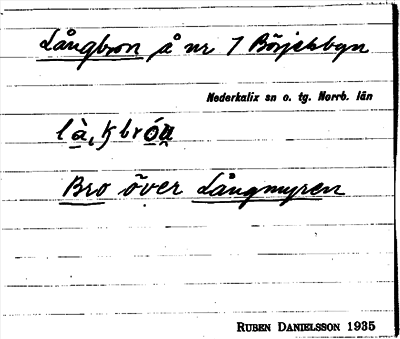 Långbron å nr 7 Börjelsbyn
Nederkalix sn o. tg. Norrb. län
Bro över Långmyren
RUBEN DANIELSSON 1935